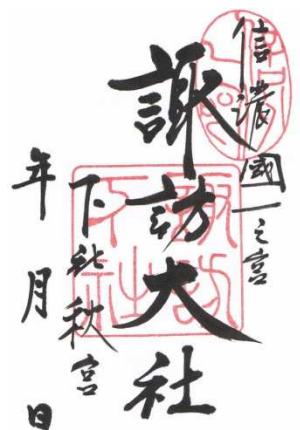 信濃國一之宮
諏訪大社
下社秋宮
年 月 日